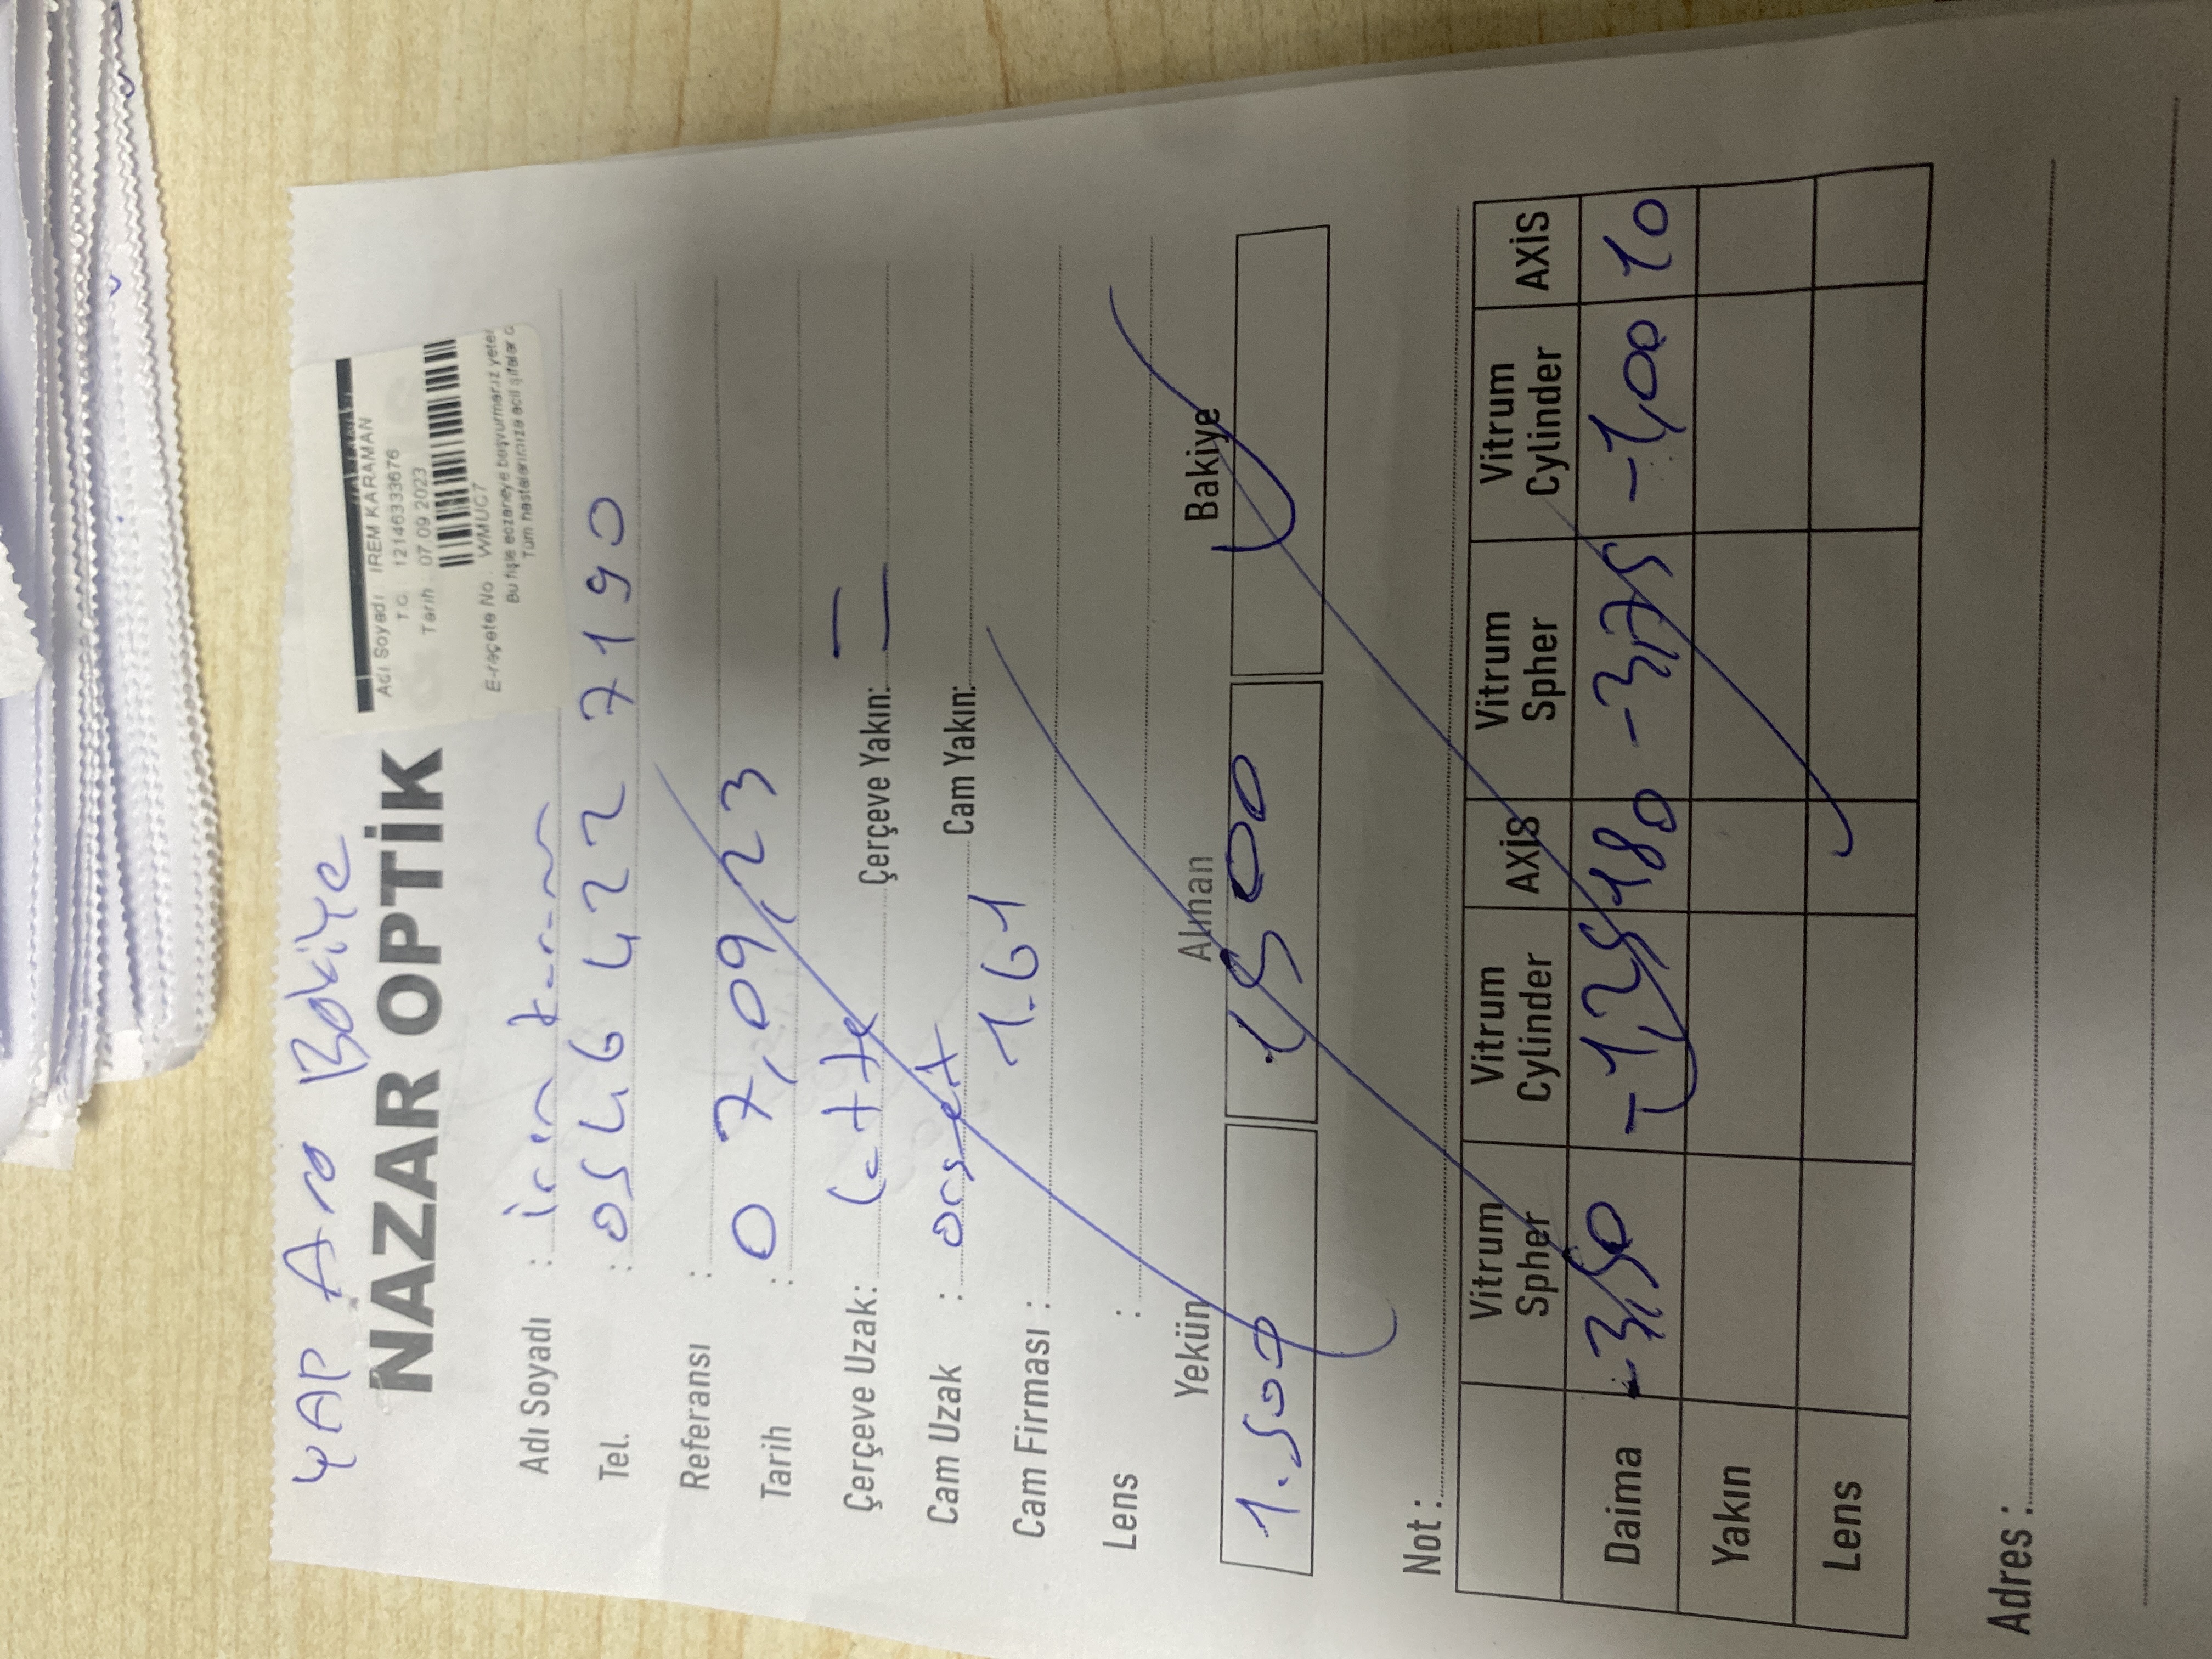 YAP Ara Bakiye
NAZAR OPTİK
Adı Soyadı : IREM KARAMAN
T.C. : 12146333676
Tarih : 07.09.2023
E-reçete No : WMUC7
Bu fişle eczaneye başvurmanız yeter
Tüm hastalarımıza acil şifalar d
Adı Soyadı : irem karaman
Tel. : 0546 422 7190
Referansı :
Tarih : 07,09,23
Çerçeve Uzak: Çerçeve Yakın: =
Cam Uzak : Cam Yakın:
1.61
Cam Firması :
Lens :
Yekün Alınan Bakiye
1.500 1500
Not :
Vitrum Spher Vitrum Cylinder AXİS Vitrum Spher Vitrum Cylinder AXİS
Daima -3,50 -1,25 180 -3,75 -1,00 10
Yakın
Lens
Adres :